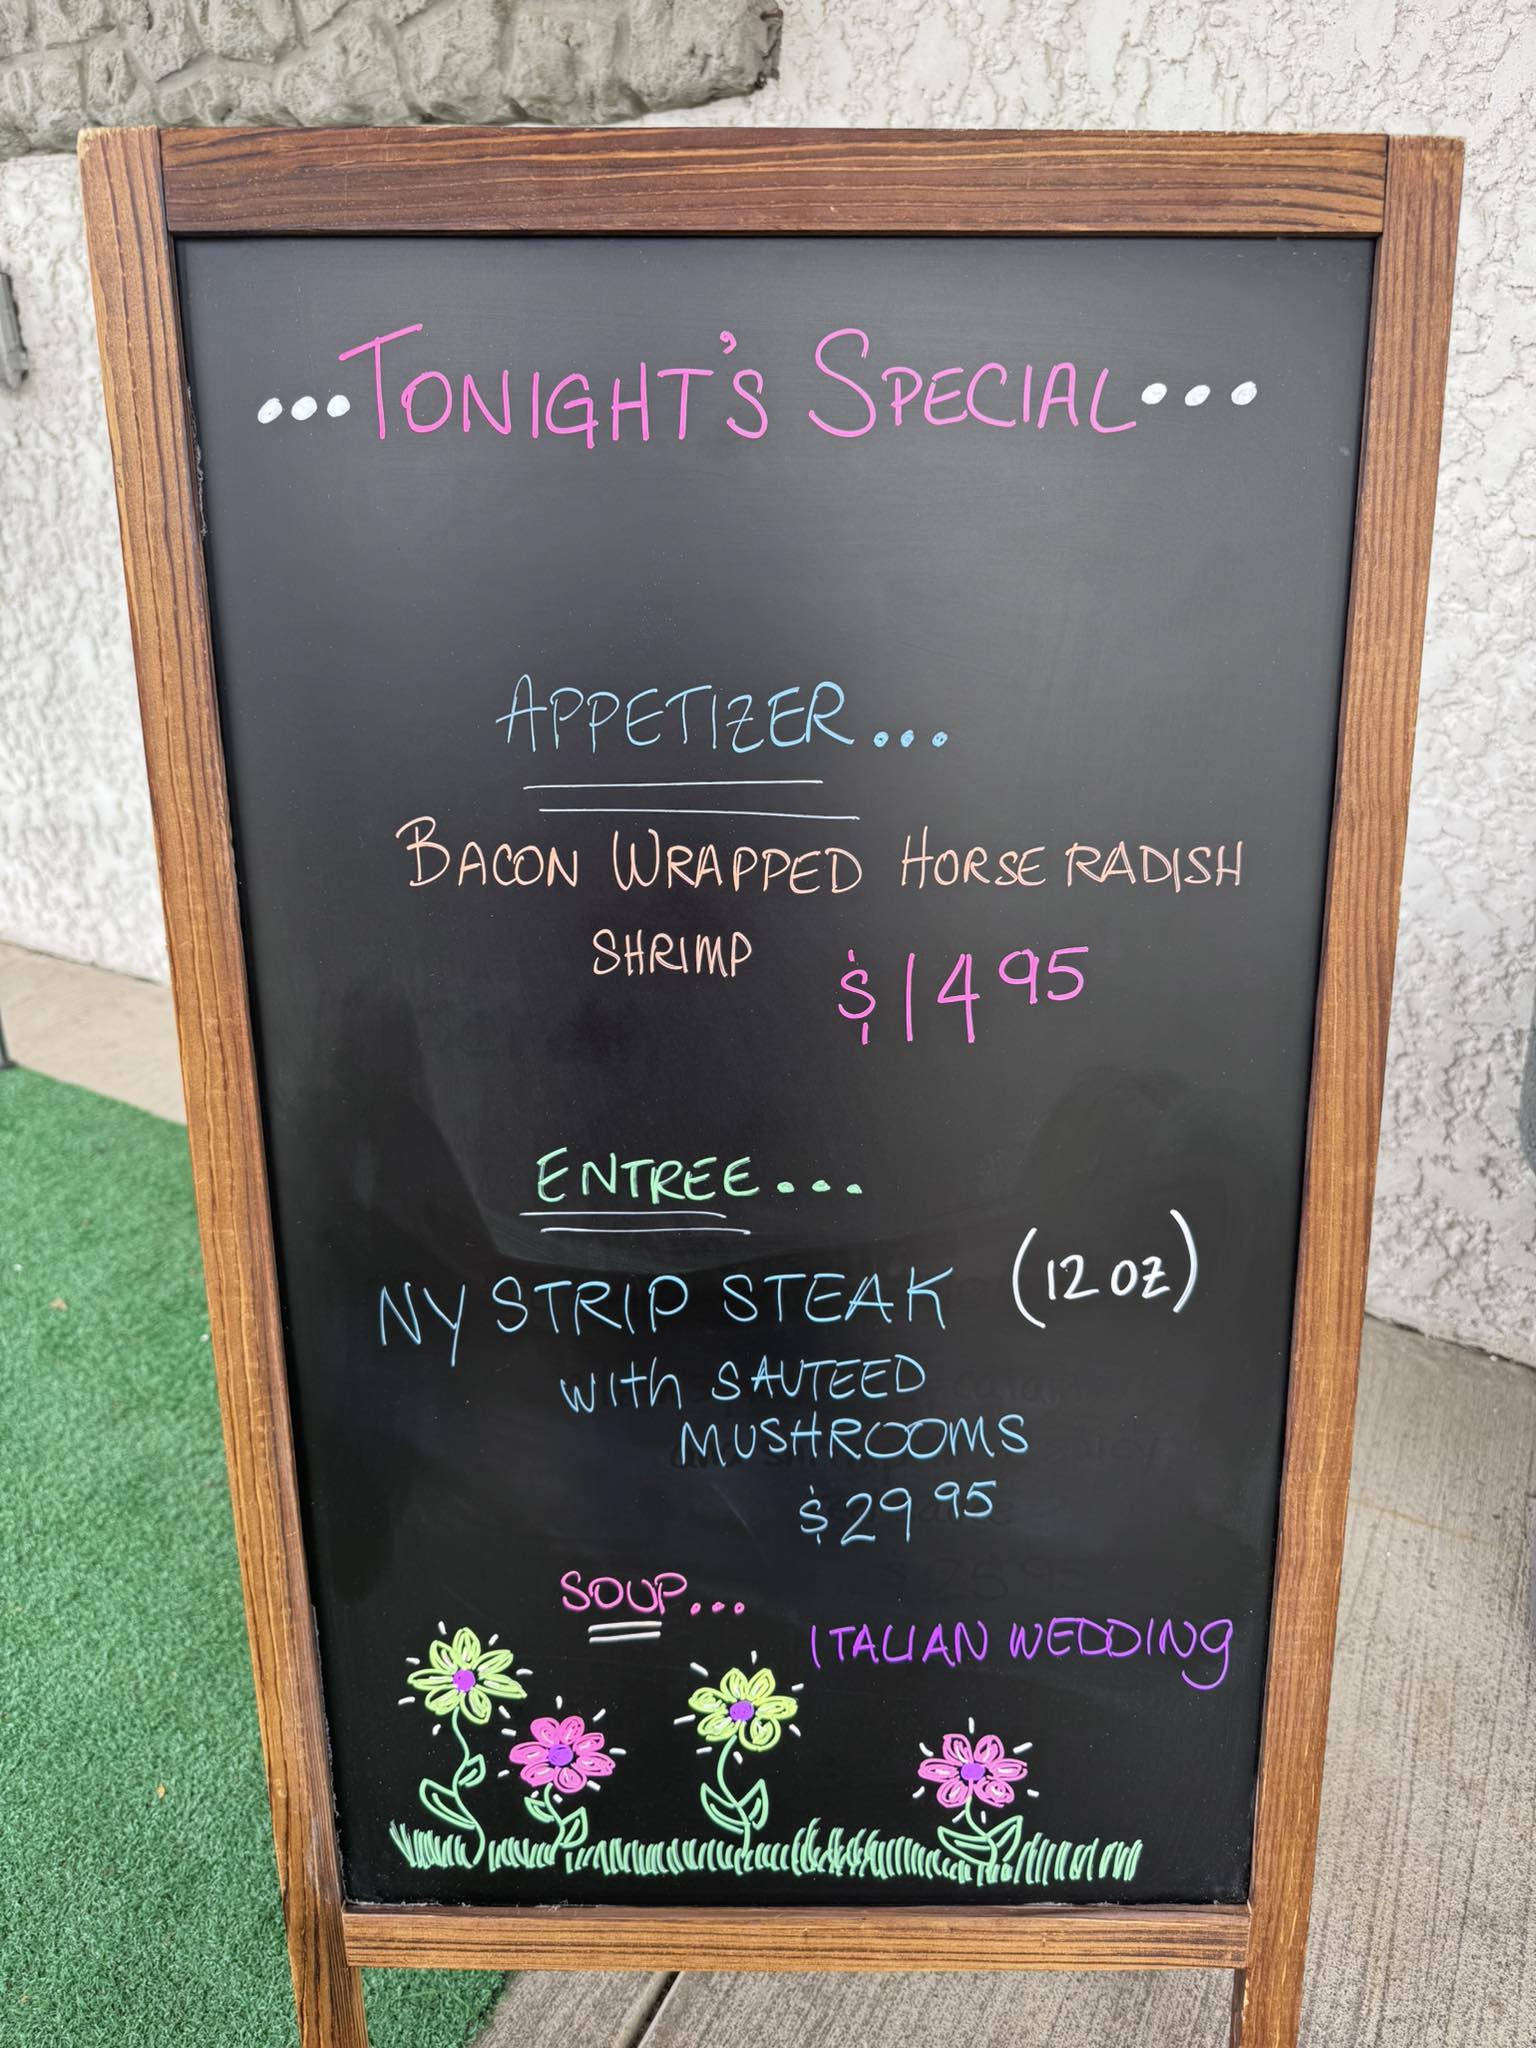 ...TONIGHT'S SPECIAL...
APPETIZER...
BACON WRAPPED HORSE RADISH
SHRIMP $14 95
ENTREE...
NY STRIP STEAK (12 OZ)
with SAUTEED
MUSHROOMS
$29 95
SOUP...
ITALIAN WEDDING